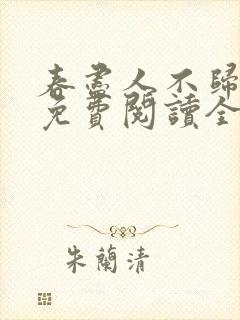 春盡人不歸
免費閱讀全
朱蘭清